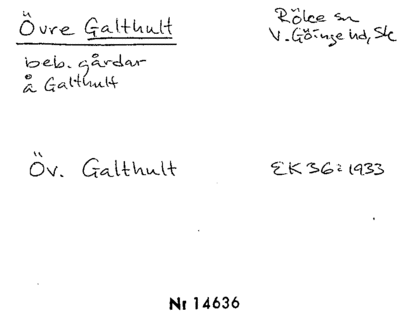 Övre Galthult
Röke sn
V. Göinge hd, Sk
beb. gårdar
å Galthult
Öv. Galthult
EK 36: 1933
Nr 14636